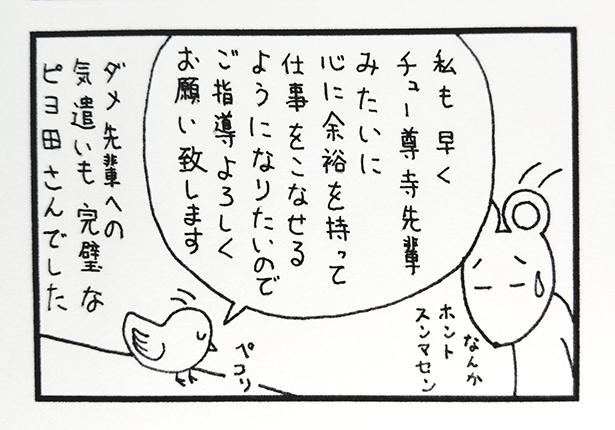 私も早く
チュー尊寺先輩
みたいに
心に余裕を持って
仕事をこなせる
ようになりたいので
ご指導よろしく
お願い致します
なんか
ホント
スンマセン
ペコリ
ダメ先輩への
気遣いも完璧な
ピヨ田さんでした